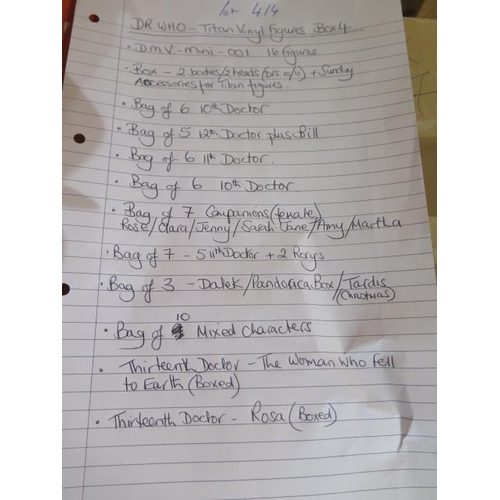 lot 414
DR WHO - Titan Vinyl figures Box 4
· D.M.V - Mini - 001 16 figures
· Box - 2 bodies/2 heads (Drs 10/11) + Sunday
Accessories for Titan figures.
· Bag of 6 10th Doctor.
· Bag of 5 12th Doctor plus Bill
· Bag of 6 11th Doctor.
· Bag of 6 10th Doctor.
· Bag of 7 Companions (female)
Rose/Clara/Jenny/Sarah Jane/Amy/Martha
· Bag of 7 - 5 11th Doctor + 2 Rorys
· Bag of 3 - Dalek/Pandorica Box/Tardis
· Bag of 10 Mixed Characters
· Thirteenth Doctor - The Woman Who Fell
to Earth (Boxed)
· Thirteenth Doctor - Rosa (Boxed)